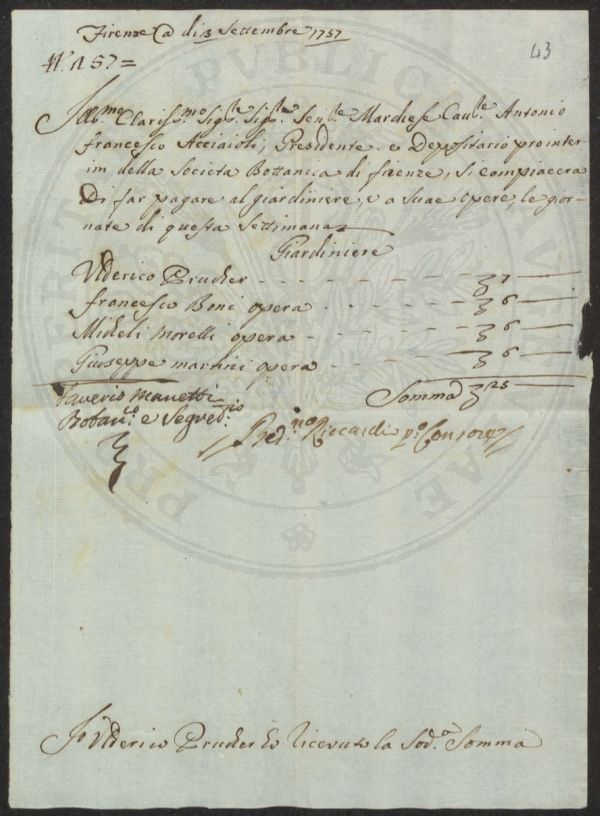 Firenze a di 3 Settembre 1757
43
N.° 157=
Ill.mo Clariss.mo Sig.re Sig.re Sen.re Marchese Cau.re Antonio
Francesco Acciaioli, Presidente e Depositario pro inter-
im della Societa Bottanica di firenze, si compiacera
Di far pagare al giardiniere, e a suae opere, le gior-
nate di questa Settimana
Giardiniere
Ulderico Prucker - - - - - - - 7
Francesco Boni opera - - - - - - 6
Micheli Morelli opera - - - - - - 6
Giuseppe martini opera - - - - - 6
Somma 25
Saverio Manetti
Botan.co e Segret.rio
Riccardi p.o Consore
Io Ulderico Prucker ho Ricevuto la Sod.a Somma
PUBLICAE